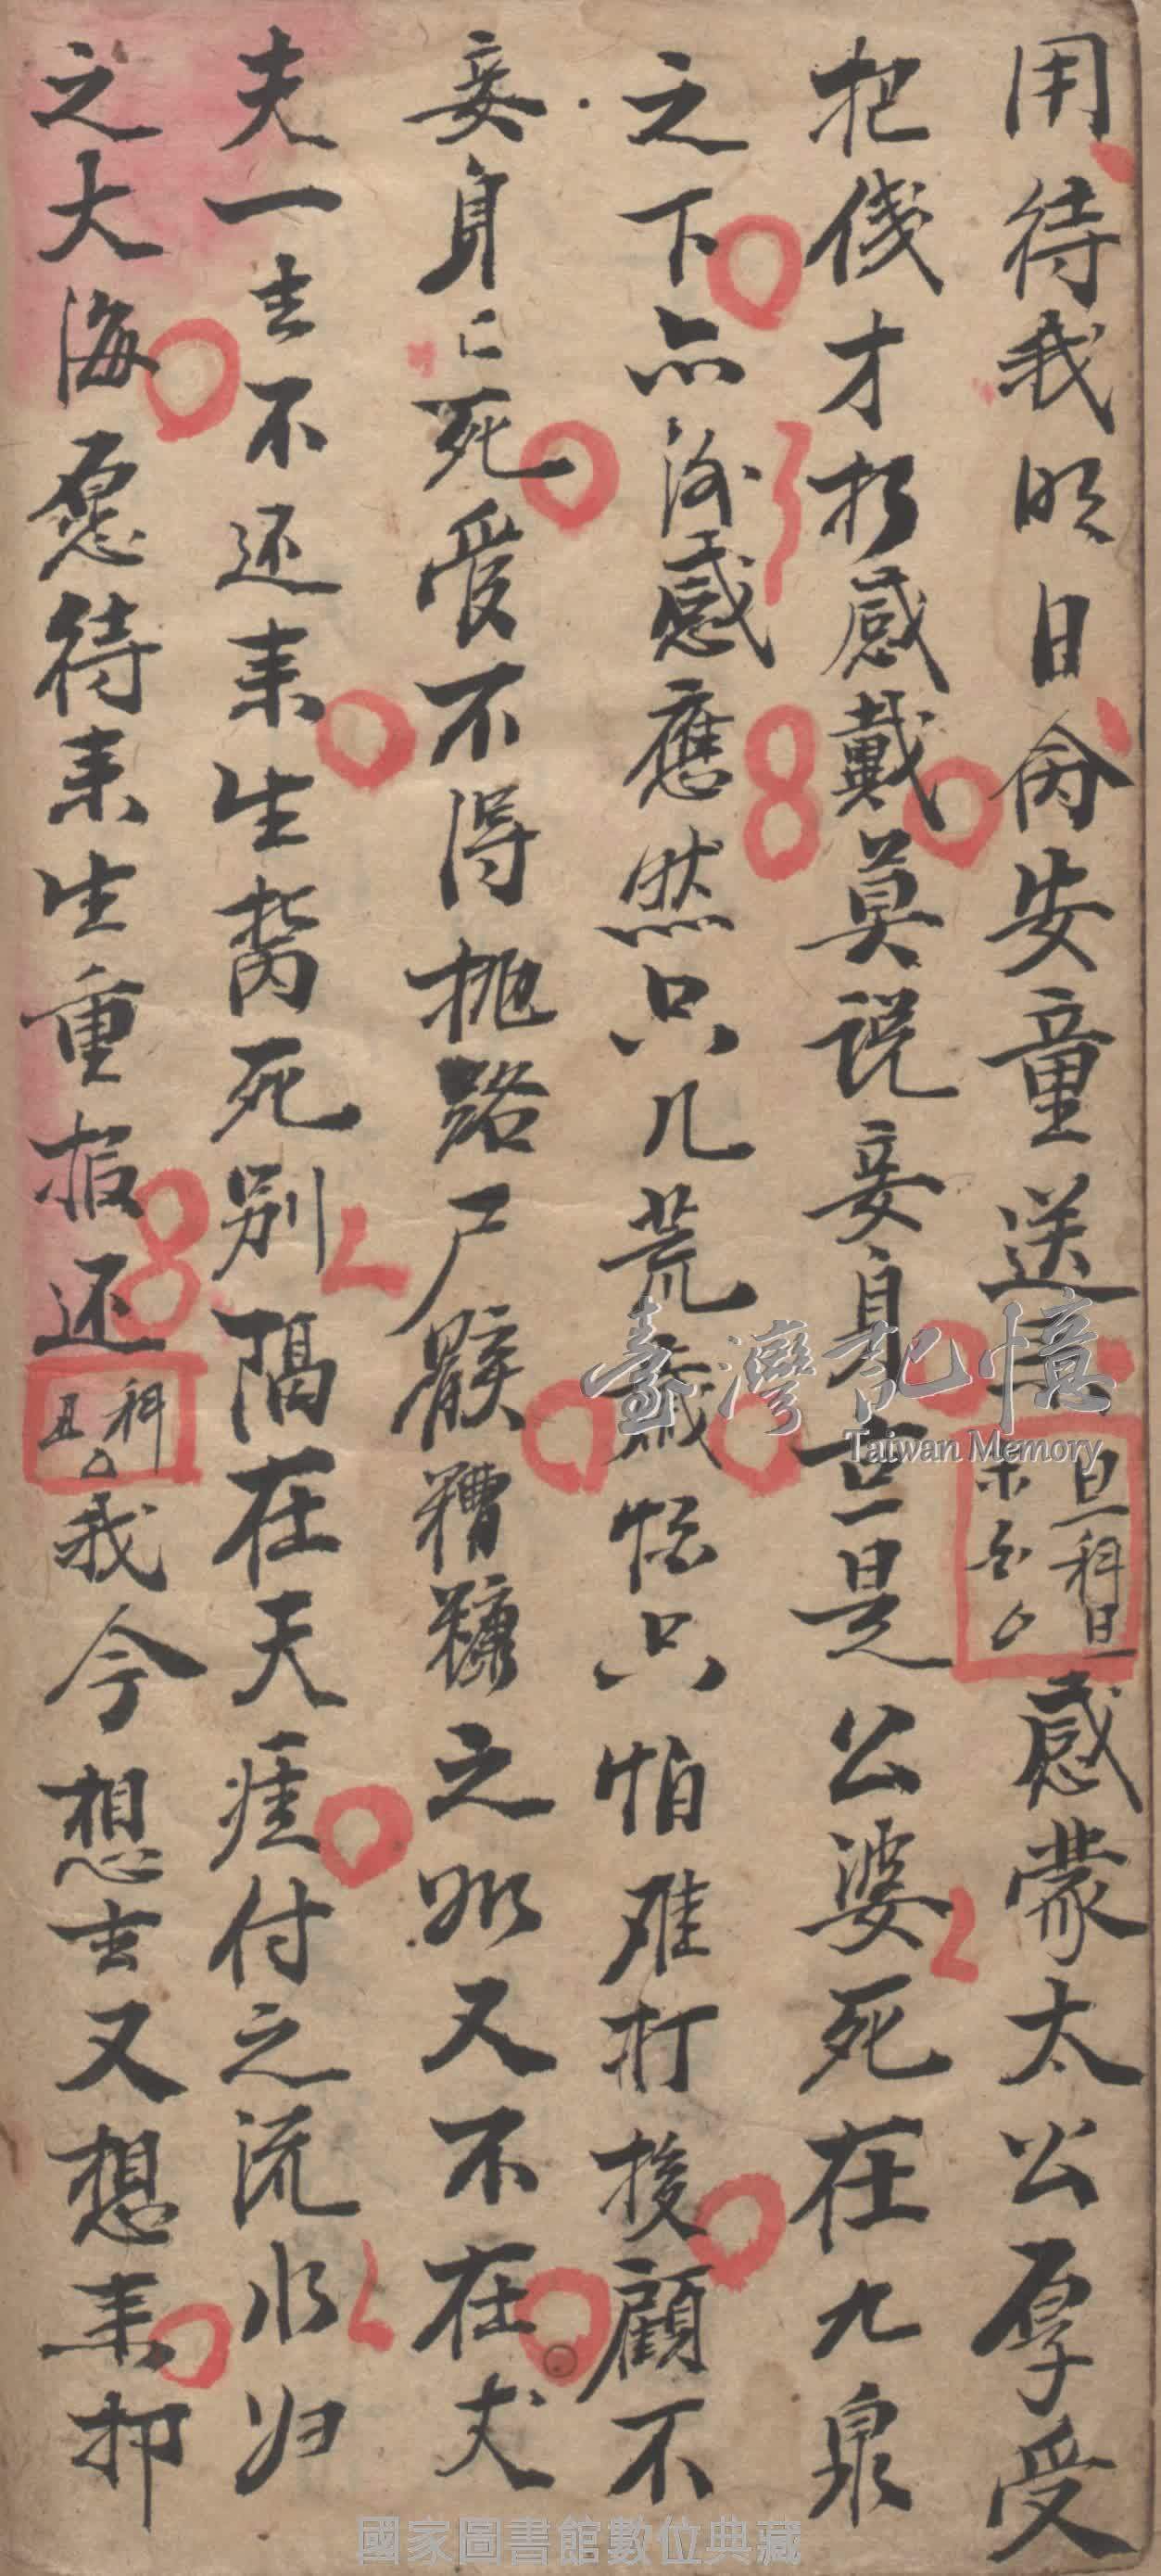 用待我明日命安童送去旦科旦末白感蒙太公厚受
把伐才折感戴莫说妾身亡是公婆死在九泉
之下亦除感應然只几荒歲恠只怕难打捘顧不
妾身亡死受不得抛路尸骸糟糠之妣又不在丈
夫一去不还来生离死别隔在天涯付之流水归
之大海愿待来生重报还科丑我今想去又想来抑
臺灣記憶
Taiwan Memory
國家圖書館數位典藏